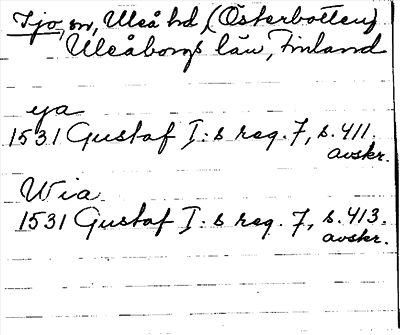 Ijo, sn, Uleå hd, (Österbotten)
Uleåborgs län, Finland
ija
1531 Gustaf I:s reg. 7, s. 411.
avskr.
Wia
1531 Gustaf I:s reg. 7, s. 413.
avskr.